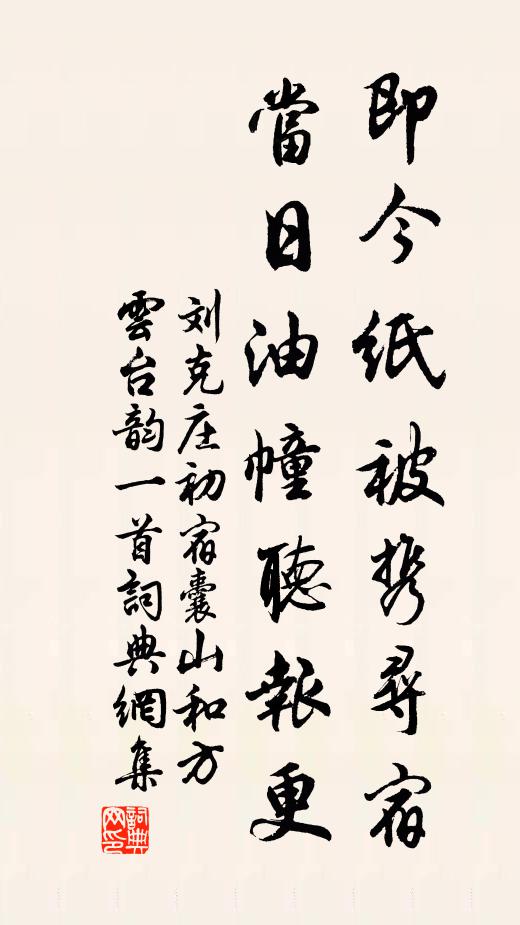 即今紙被携尋宿
當日油幢聽報更
刘克庄初宿囊山和方
雲台韵一首詞典網集
詞典网印